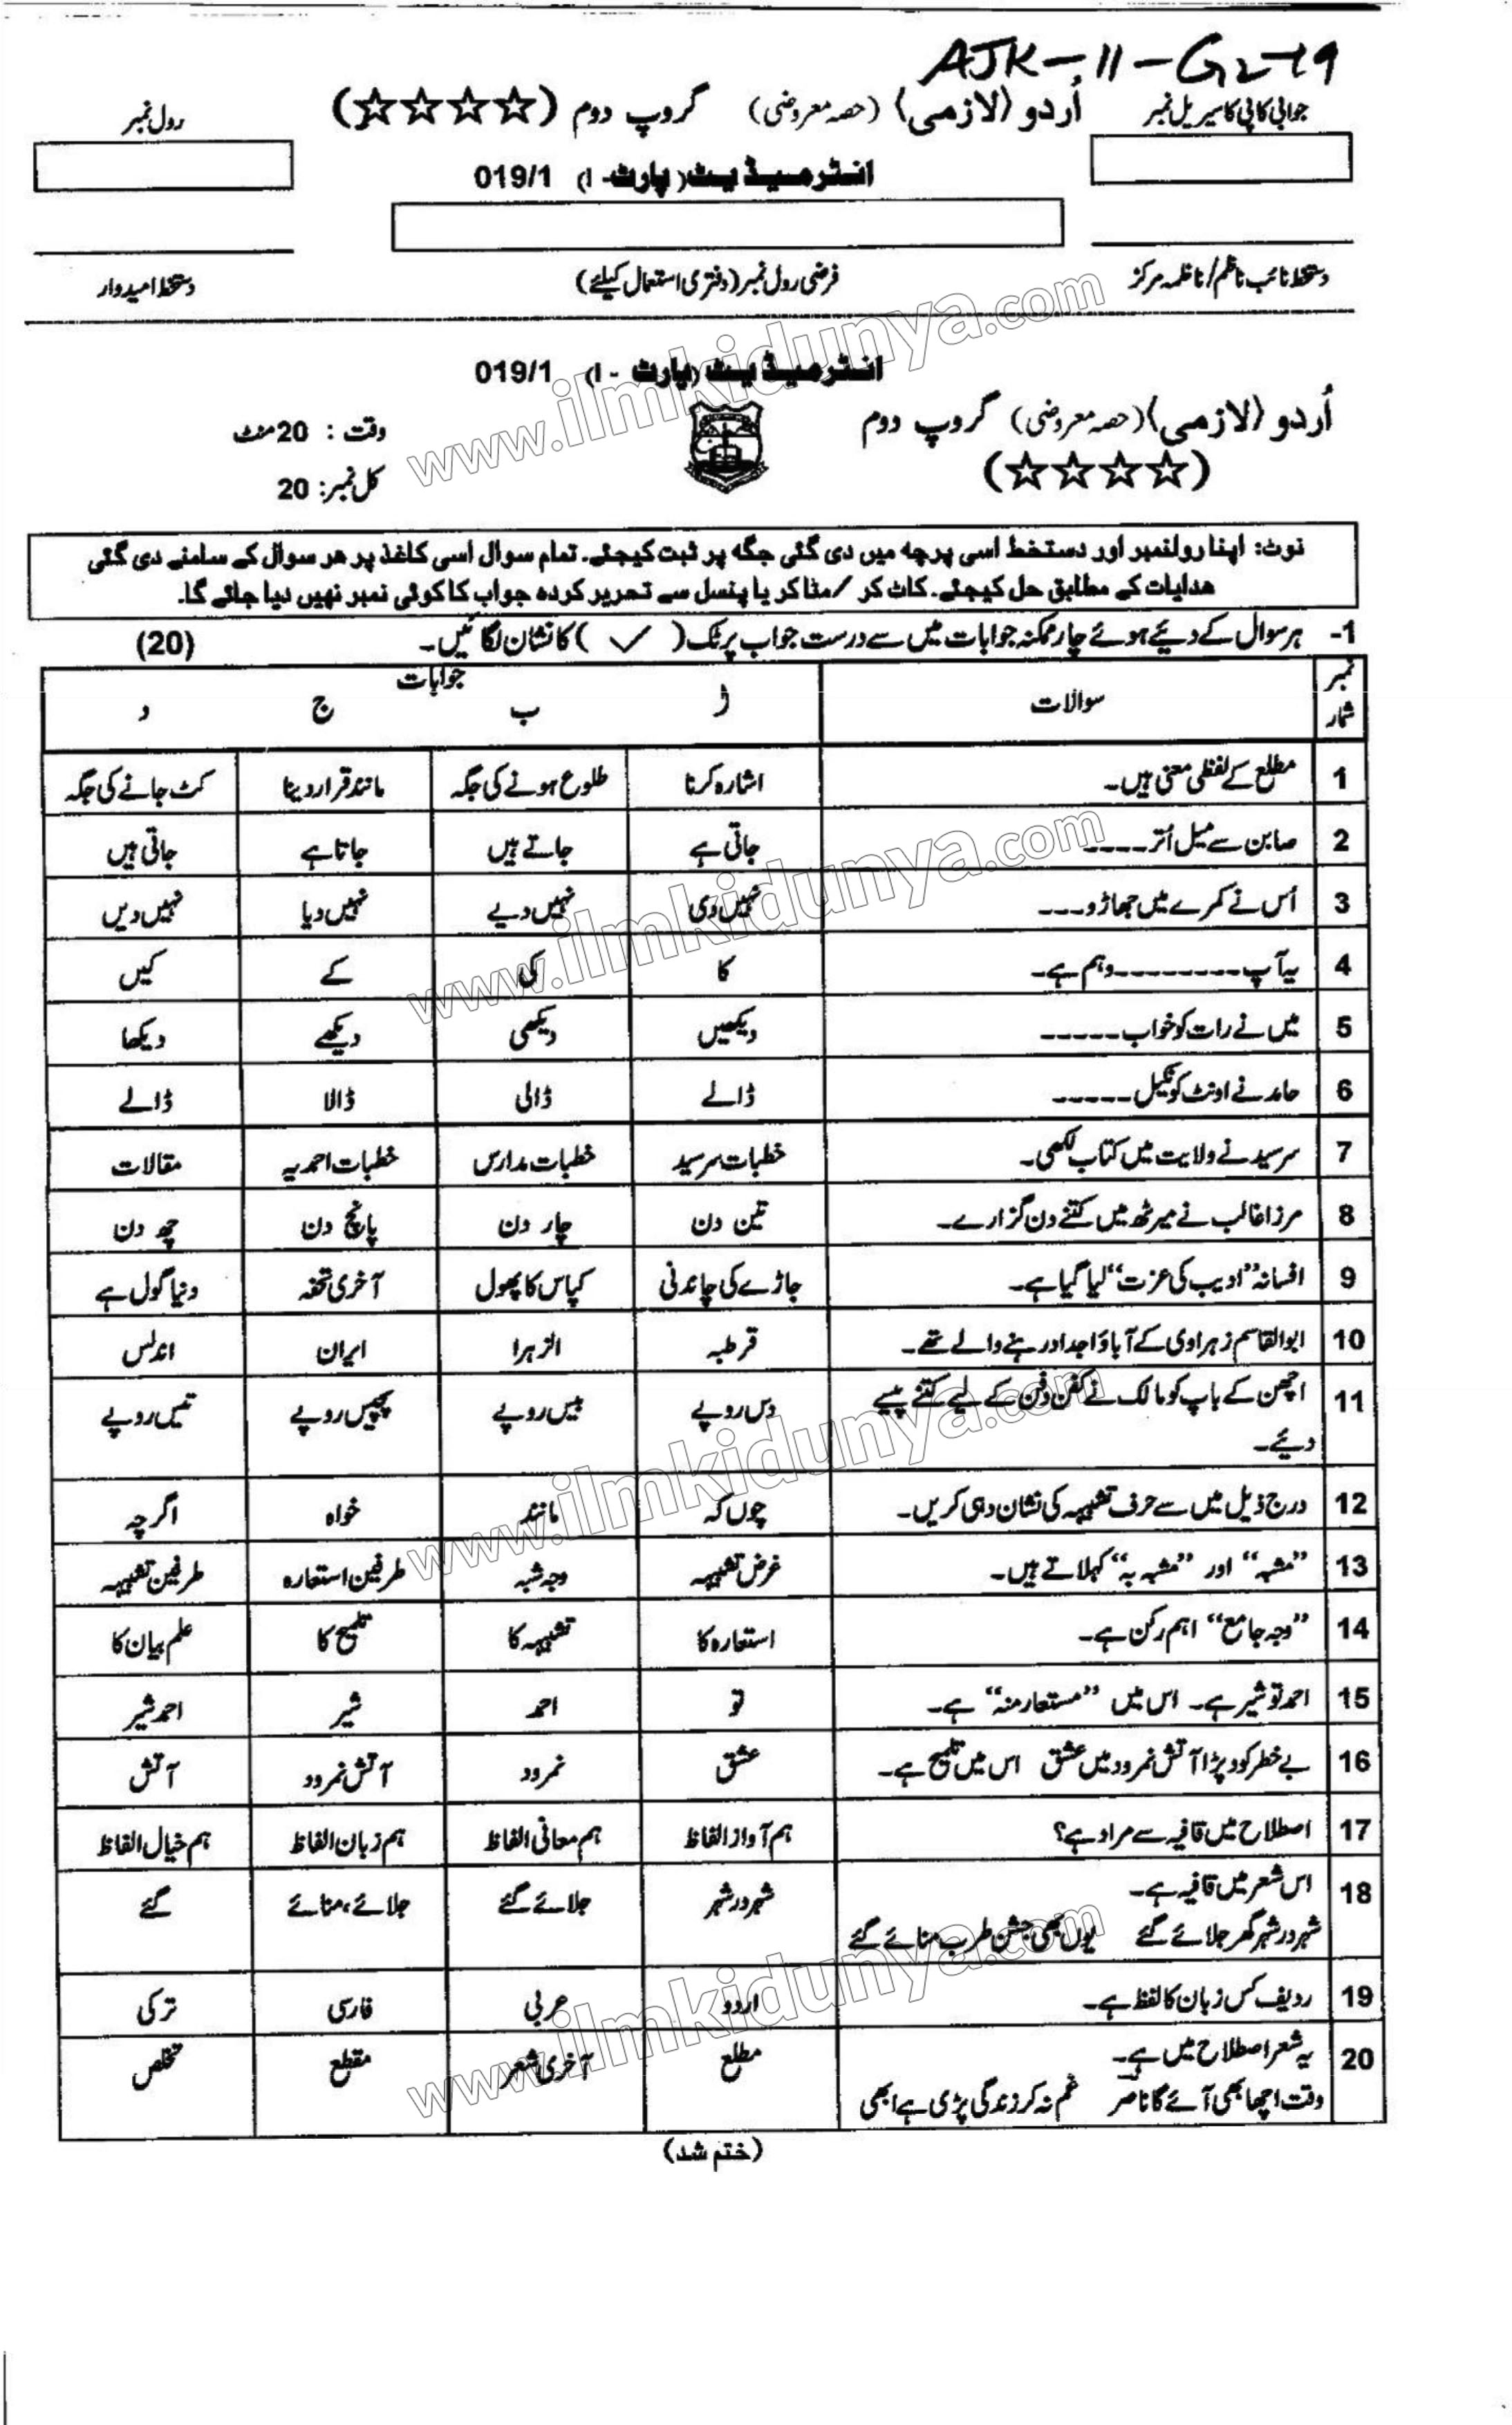 AJK-11-G2-19
جوابی کاپی کا سیریل نمبر اُردو (لازمی) (حصہ معروضی) گروپ دوم (☆☆☆☆) رول نمبر
انٹرمیڈیٹ (پارٹ - I) 019/1
دستخط نائب ناظم/ناظمہ مرکز فرضی رول نمبر (دفتری استعمال کیلئے) دستخط امیدوار
انٹرمیڈیٹ (پارٹ - I) 019/1
اُردو (لازمی) (حصہ معروضی) گروپ دوم وقت : 20 منٹ
(☆☆☆☆) کل نمبر: 20
نوٹ: اپنا رولنمبر اور دستخط اسی پرچہ میں دی گئی جگہ پر ثبت کیجئے۔ تمام سوال اسی کاغذ پر ہر سوال کے سامنے دی گئی
ہدایات کے مطابق حل کیجئے۔ کاٹ کر /مٹا کر یا پنسل سے تحریر کردہ جواب کا کوئی نمبر نہیں دیا جائے گا۔
1- ہر سوال کے دیئے ہوئے چار ممکنہ جوابات میں سے درست جواب پر ٹک ( ✓ ) کا نشان لگائیں۔ (20)
نمبر شمار سوالات جوابات
ا ب ج د
1 مطلع کے لفظی معنی ہیں۔ اشارہ کرنا طلوع ہونے کی جگہ مانند قرار دینا کٹ جانے کی جگہ
2 صابن سے میل اُتر ---- جاتی ہے جاتے ہیں جاتا ہے جاتی ہیں
3 اُس نے کمرے میں جھاڑو --- نہیں دی نہیں دیے نہیں دیا نہیں دیں
4 یہ آپ -------- وہم ہے۔ کا کی کے کیں
5 میں نے رات کو خواب ------ دیکھیں دیکھی دیکھے دیکھا
6 حامد نے اونٹ کو نکیل ----- ڈالے ڈالی ڈالا ڈالے
7 سرسید نے ولایت میں کتاب لکھی۔ خطبات سرسید خطبات مدارس خطبات احمدیہ مقالات
8 مرزا غالب نے میرٹھ میں کتنے دن گزارے۔ تین دن چار دن پانچ دن چھ دن
9 افسانہ "ادیب کی عزت" لیا گیا ہے۔ جاڑے کی چاندنی کپاس کا پھول آخری تحفہ دنیا گول ہے
10 ابوالقاسم زہراوی کے آباؤ اجداد رہنے والے تھے۔ قرطبہ الزہرا ایران اندلس
11 اچھن کے باپ کو مالک نے کفن دفن کے لیے کتنے پیسے
دیئے۔ دس روپے بیس روپے پچیس روپے تیس روپے
12 درج ذیل میں سے حرف تشبیہہ کی نشان دہی کریں۔ چوں کہ مانند خواہ اگرچہ
13 "مشبہ" اور "مشبہ بہ" کہلاتے ہیں۔ غرض تشبیہہ وجہ شبہ طرفین استعارہ طرفین تشبیہہ
14 "وجہ جامع" اہم رکن ہے۔ استعارہ کا تشبیہہ کا تلمیح کا علم بیان کا
15 احمد تو شیر ہے۔ اس میں "مستعار منہ" ہے۔ تو احمد شیر احمد شیر
16 بے خطر کود پڑا آتش نمرود میں عشق اس میں تلمیح ہے۔ عشق نمرود آتش نمرود آتش
17 اصطلاح میں قافیہ سے مراد ہے؟ ہم آواز الفاظ ہم معانی الفاظ ہم زبان الفاظ ہم خیال الفاظ
18 اس شعر میں قافیہ ہے۔ شہر در شہر جلائے گئے جلائے، منائے گئے
شہر در شہر گھر جلائے گئے یوں بھی جشن طرب منائے گئے
19 ردیف کس زبان کا لفظ ہے۔ اردو عربی فارسی ترکی
20 یہ شعر اصطلاح میں ہے۔ مطلع آخری شعر مقطع تخلص
وقت اچھا بھی آئے گا ناصر غم نہ کر زندگی پڑی ہے ابھی
(ختم شد)
www.ilmkidunya.com
www.ilmkidunya.com
www.ilmkidunya.com
www.ilmkidunya.com